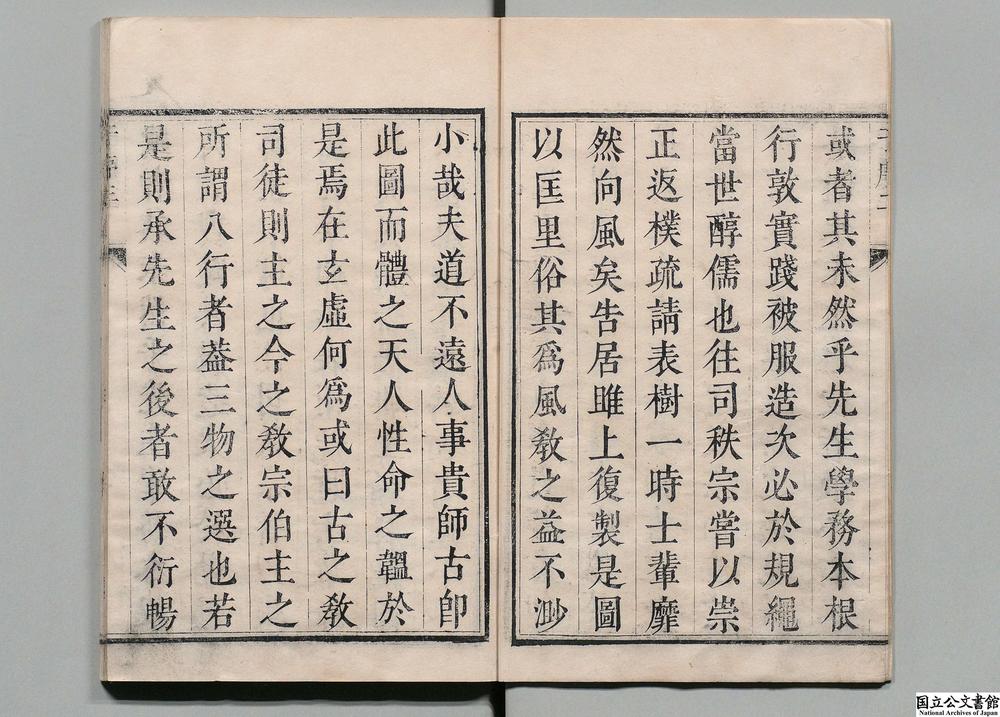 或者其未然乎先生學務本根
行敦實踐被服造次必於規繩
當世醇儒也往司秩宗嘗以崇
正返樸疏請表樹一時士輩靡
然向風矣告居雎上復製是圖
以匡里俗其爲風敎之益不渺
小哉夫道不遠人事貴師古卽
此圖而體之天人性命之韞於
是焉在玄虛何爲或曰古之敎
司徒則主之今之敎宗伯主之
所謂八行者葢三物之選也若
是則承先生之後者敢不衍暢
国立公文書館
National Archives of Japan